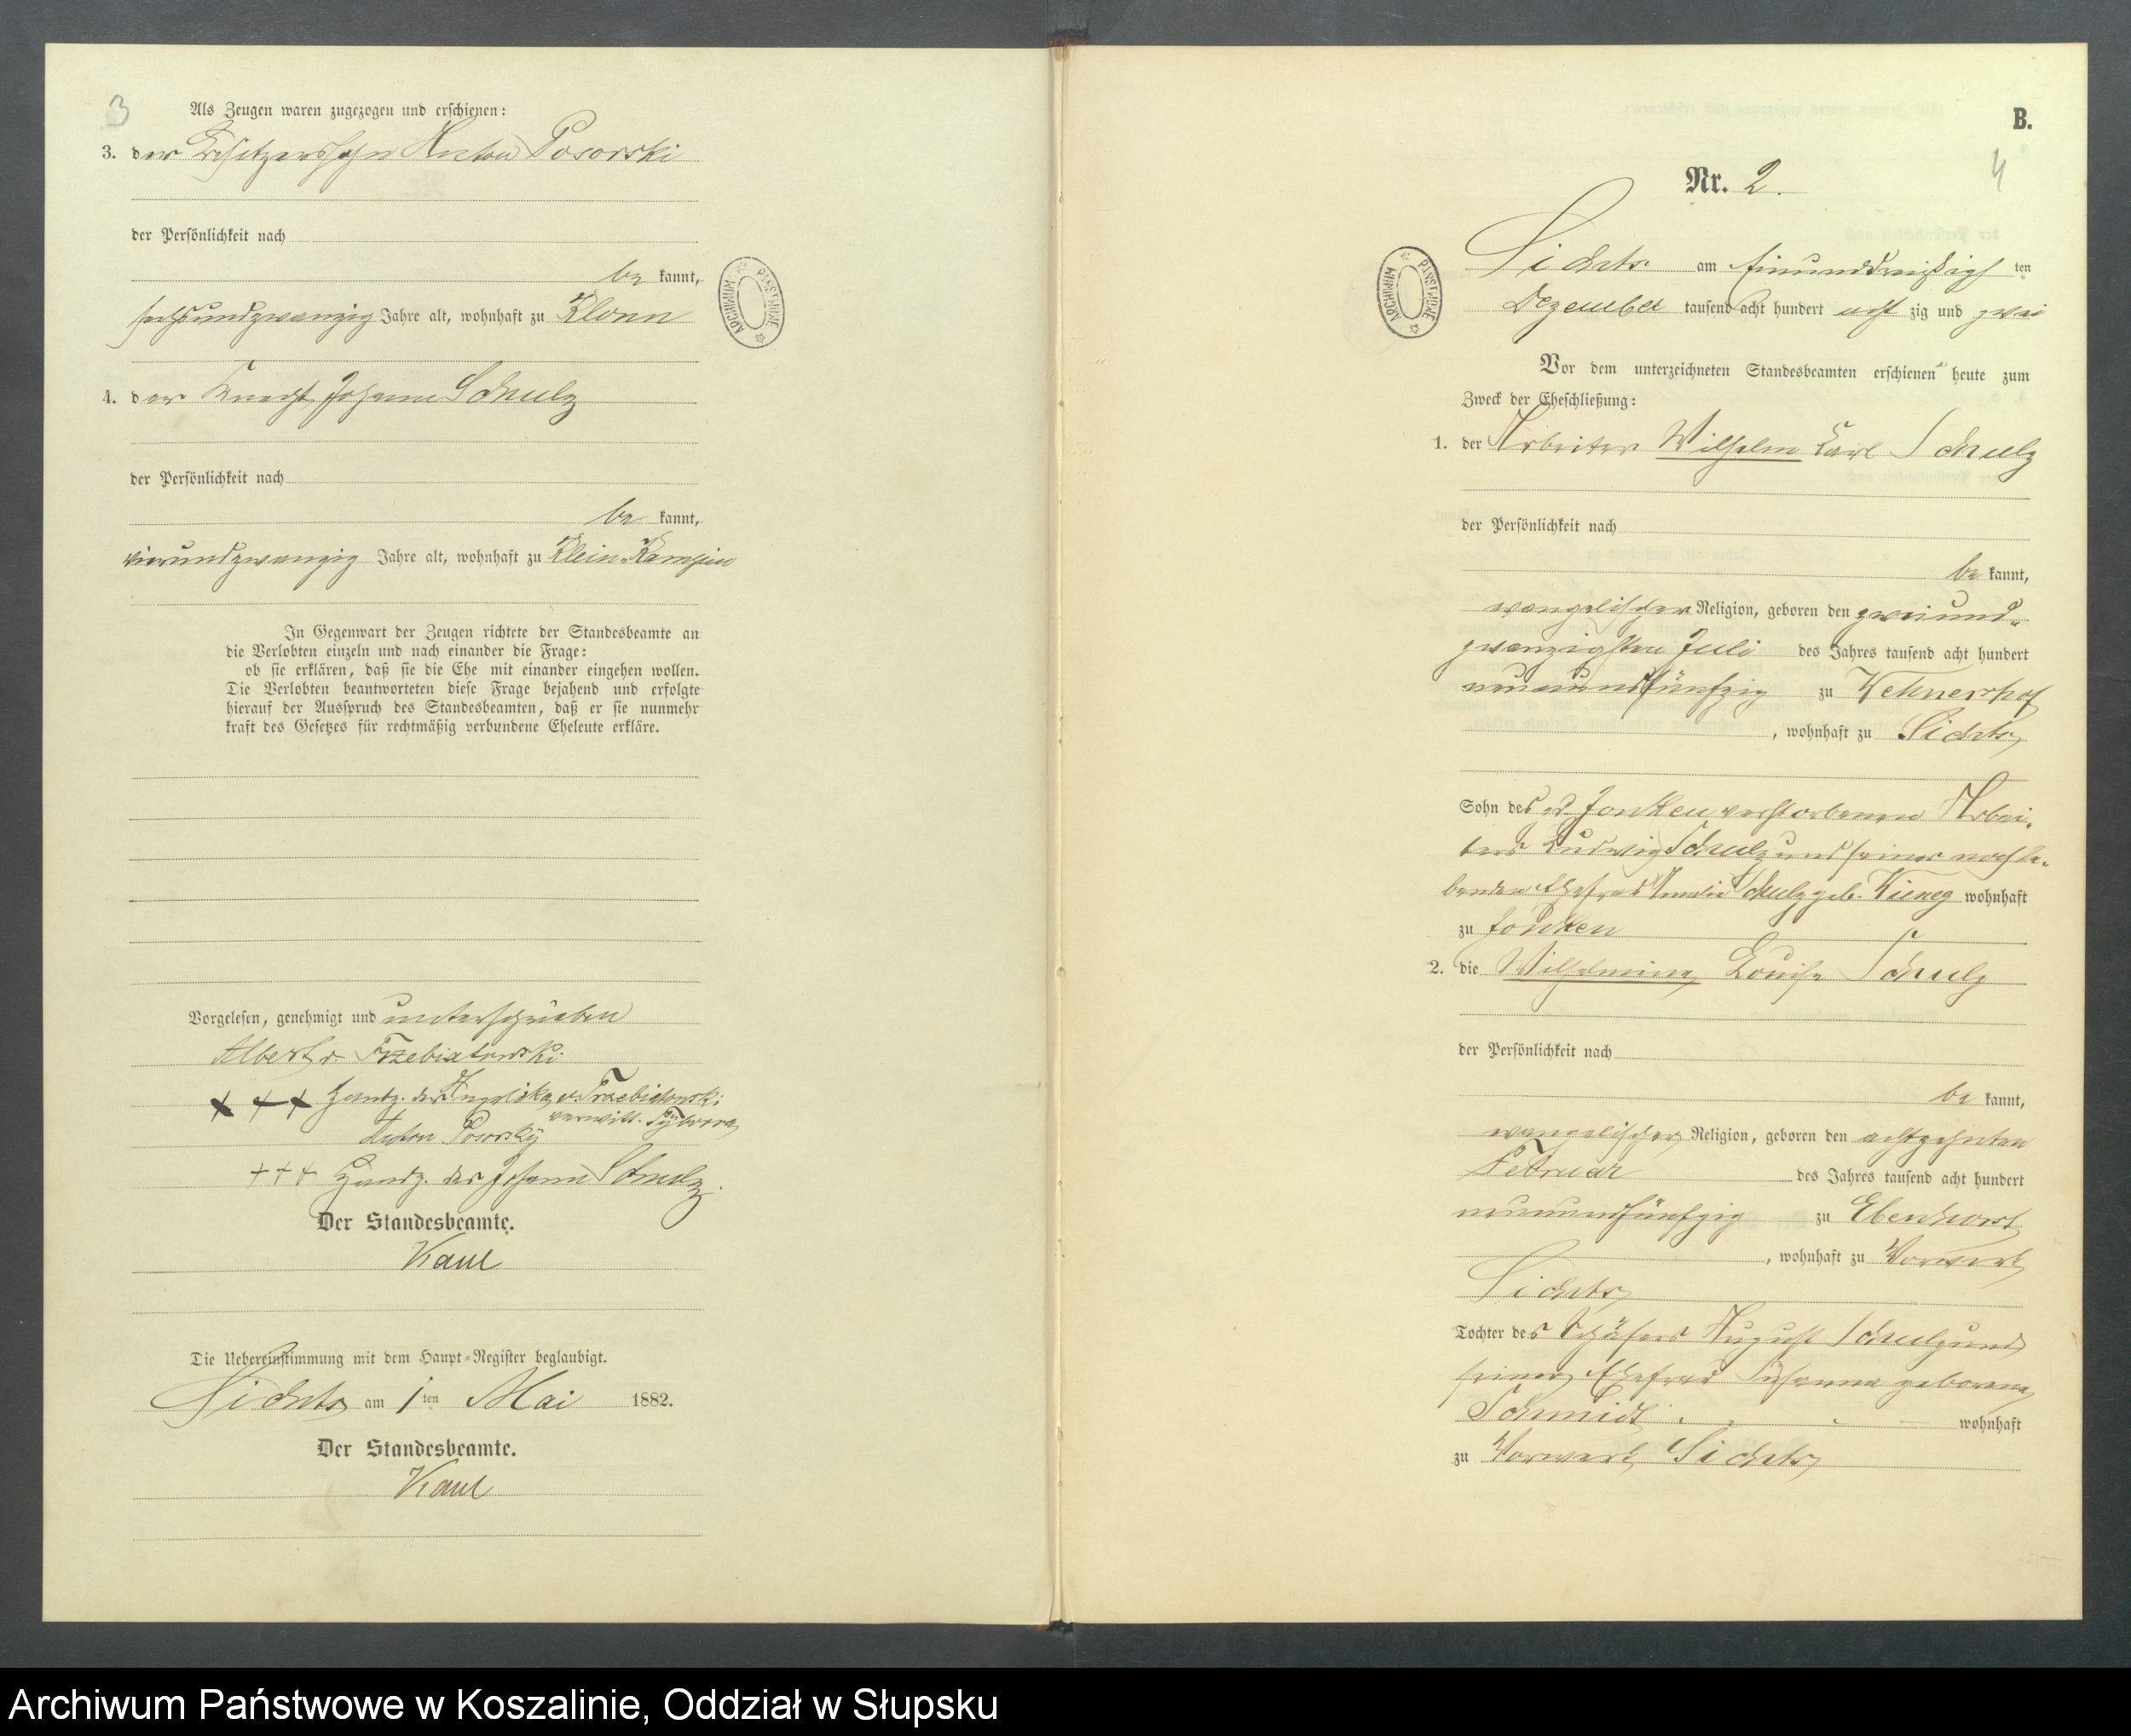 3
Als Zeugen waren zugezogen und erschienen:
3. der Besitzerssohn Anton Posorski
der Persönlichkeit nach
be kannt,
sechsundzwanzig Jahre alt, wohnhaft zu Klonn
4. der Knecht Johann Schulz
der Persönlichkeit nach
be kannt,
vierundzwanzig Jahre alt, wohnhaft zu Klein-
In Gegenwart der Zeugen richtete der Standesbeamte an
die Verlobten einzeln und nach einander die Frage:
ob sie erklären, daß sie die Ehe mit einander eingehen wollen.
Die Verlobten beantworteten diese Frage bejahend und erfolgte
hierauf der Ausspruch des Standesbeamten, daß er sie nunmehr
kraft des Gesetzes für rechtmäßig verbundene Eheleute erkläre.
Vorgelesen, genehmigt und unterschrieben
Albert v. Trzebiatowski
+++ Handz. der Angelika v. Trzebiatowski
verwitt.
Anton Posorsky
+++ Handz. des Johann Schulz.
Der Standesbeamte.
Kaul
Die Uebereinstimmung mit dem Haupt-Register beglaubigt.
Sichts am 1 ten Mai 1882.
Der Standesbeamte.
Kaul
ARCHIWUM PAŃSTWOWE
B.
4
Nr. 2.
Sichts am Einunddreißigst ten
Dezember tausend acht hundert acht zig und zwei
Vor dem unterzeichneten Standesbeamten erschienen heute zum
Zweck der Eheschließung:
1. der Arbeiter Wilhelm Karl Schulz
der Persönlichkeit nach
be kannt,
evangelischer Religion, geboren den zweiund-
zwanzigsten Juli des Jahres tausend acht hundert
neunundfünfzig zu
, wohnhaft zu Sichts,
Sohn des zu verstorbenen Arbei-
ters Ludwig Schulz und seiner nochle-
benden Ehefrau Amalie Schulz geb. wohnhaft
zu
2. die Wilhelmine Louise Schulz
der Persönlichkeit nach
be kannt,
evangelischer Religion, geboren den achtzehnten
Februar des Jahres tausend acht hundert
neunundfünfzig zu
, wohnhaft zu Vorwerk
Sichts,
Tochter des Schäfers August Schulz und
seiner Ehefrau geborene
Schmidt wohnhaft
zu Vorwerk Sichts,
ARCHIWUM PAŃSTWOWE
Archiwum Państwowe w Koszalinie, Oddział w Słupsku